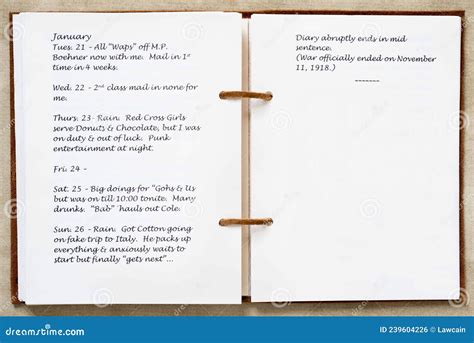 January
Tues. 21 – All "Waps" off M.P.
Boehner now with me. Mail in 1st
time in 4 weeks.
Wed. 22 – 2nd class mail in none for
me.
Thurs. 23- Rain. Red Cross Girls
serve Donuts & Chocolate, but I was
on duty & out of luck. Punk
entertainment at night.
Fri. 24 –
Sat. 25 – Big doings for "Gohs & Us
but was on till 10:00 tonite. Many
drunks. "Bab" hauls out Cole.
Sun. 26 – Rain. Got Cotton going
on fake trip to Italy. He packs up
everything & anxiously waits to
start but finally "gets next"...
Diary abruptly ends in mid
sentence.
(War officially ended on November
11, 1918.)
-------
dreamstime.com
ID 239604226 © Lawcain